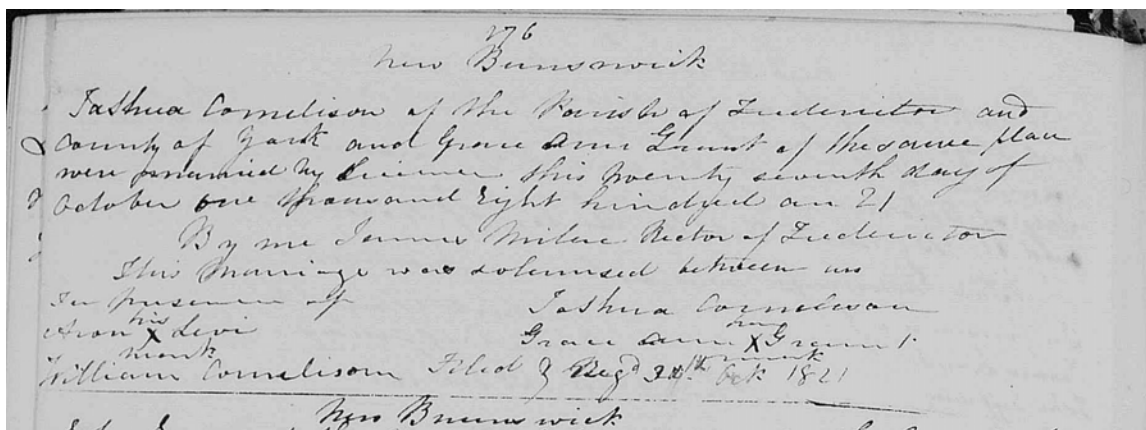 276
New Brunswick
Joshua Cornelison of the Parish of Fredericton and
County of York and Grace Ann Grant of the same place
were married by Licence this twenty seventh day of
October one thousand Eight hundred an 21
By me James Milne Rector of Fredericton
This Marriage was solemnised between us
In presence of
Joshua Cornelison
Aron his X Levi
mark
Grace Ann her X Grant
mark
William Cornelison Filed & Regd 31th Oct 1821
New Brunswick